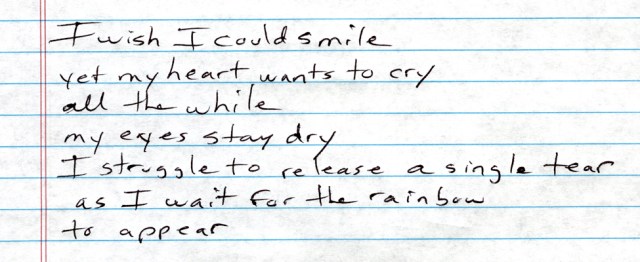 I wish I could smile
yet my heart wants to cry
all the while
my eyes stay dry
I struggle to release a single tear
as I wait for the rainbow
to appear